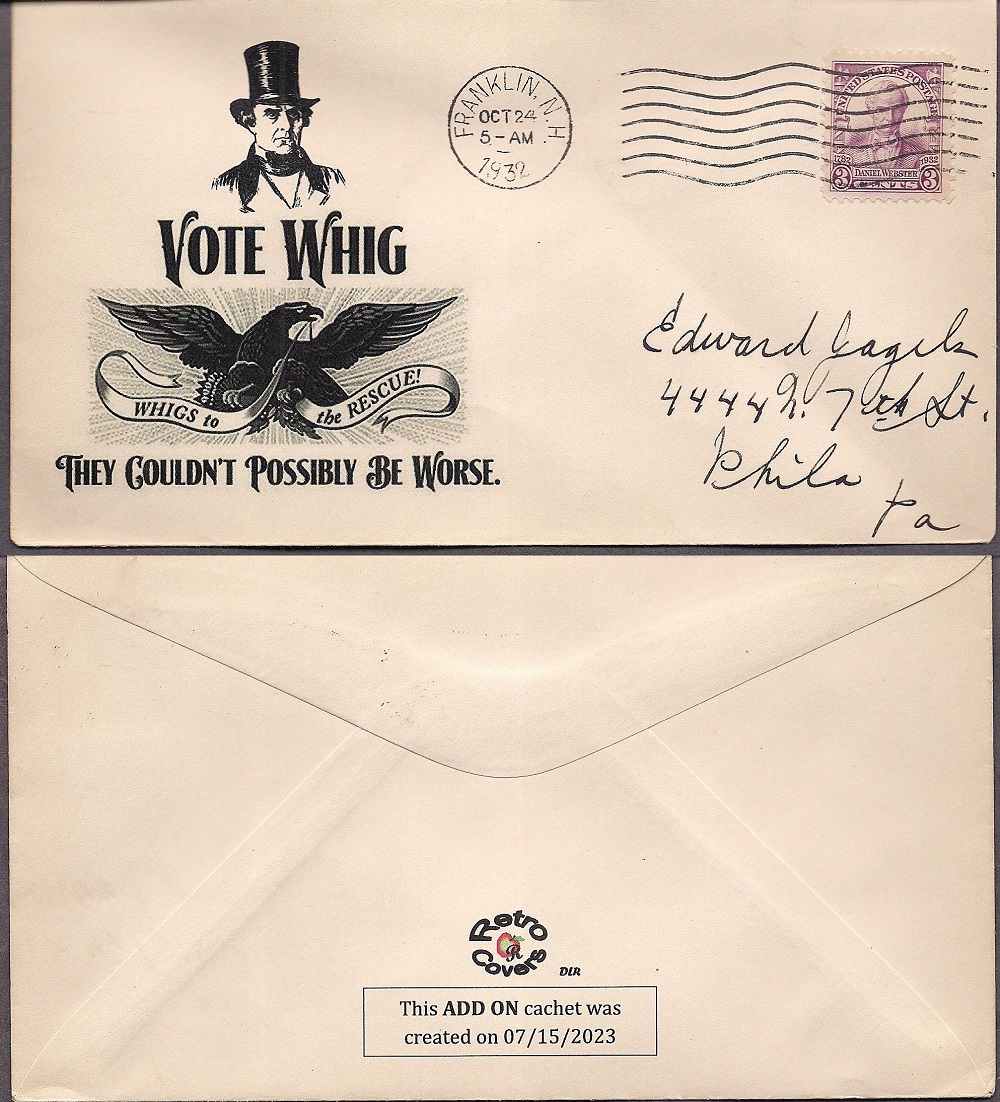 FRANKLIN, N.H.
OCT 24
5-AM
1932
UNITED STATES POSTAGE
1782 1932
3 DANIEL WEBSTER 3
CENTS
VOTE WHIG
WHIGS to the RESCUE!
THEY COULDN'T POSSIBLY BE WORSE.
Edward
4444 N. 7th St.
Phila
Pa
Retro
R
Covers
DLR
This ADD ON cachet was
created on 07/15/2023